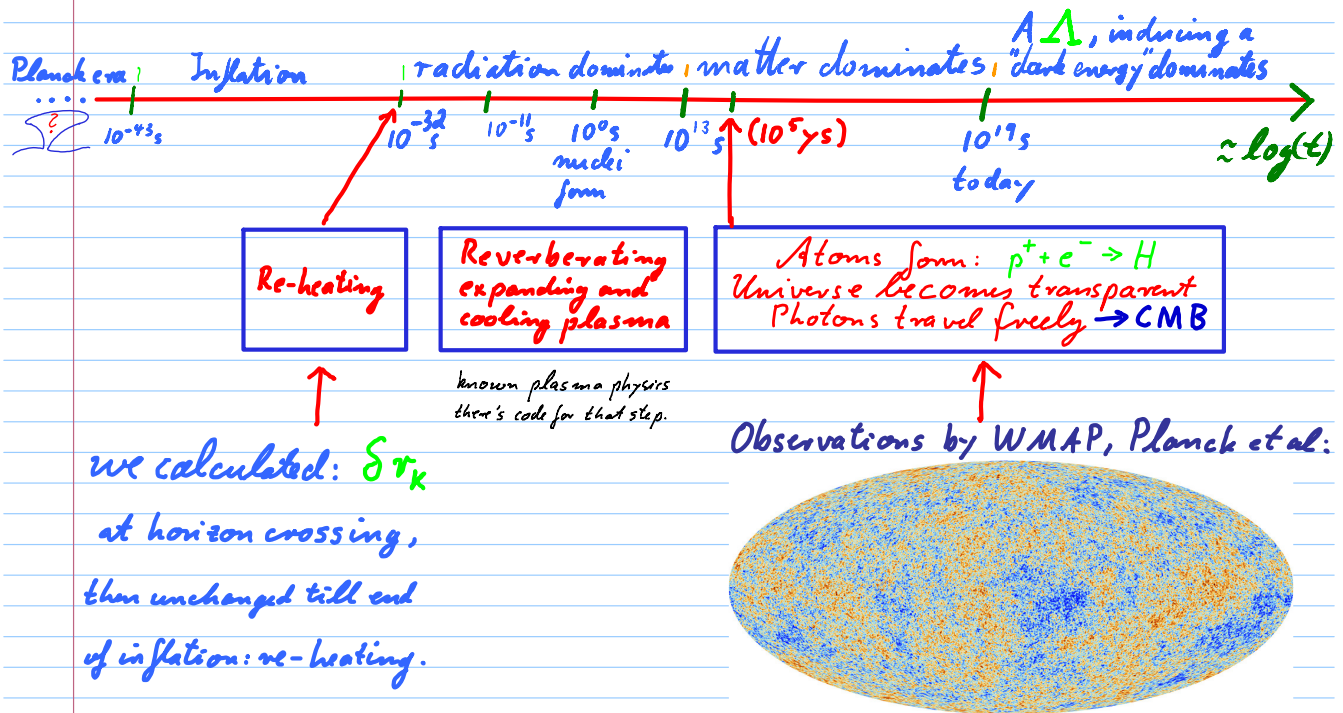 A Λ, inducing a
Planck era Inflation radiation dominates matter dominates "dark energy" dominates
....
?
10⁻⁴³s 10⁻³²s 10⁻¹¹s 10⁰s 10¹³s (10⁵ys) 10¹⁹s ≈ log(t)
nuclei
form
today
Re-heating
Reverberating
expanding and
cooling plasma
Atoms form: p⁺ + e⁻ → H
Universe becomes transparent
Photons travel freely → CMB
known plasma physics
there's code for that step.
we calculated: δr_k
at horizon crossing,
then unchanged till end
of inflation: re-heating.
Observations by WMAP, Planck et al: